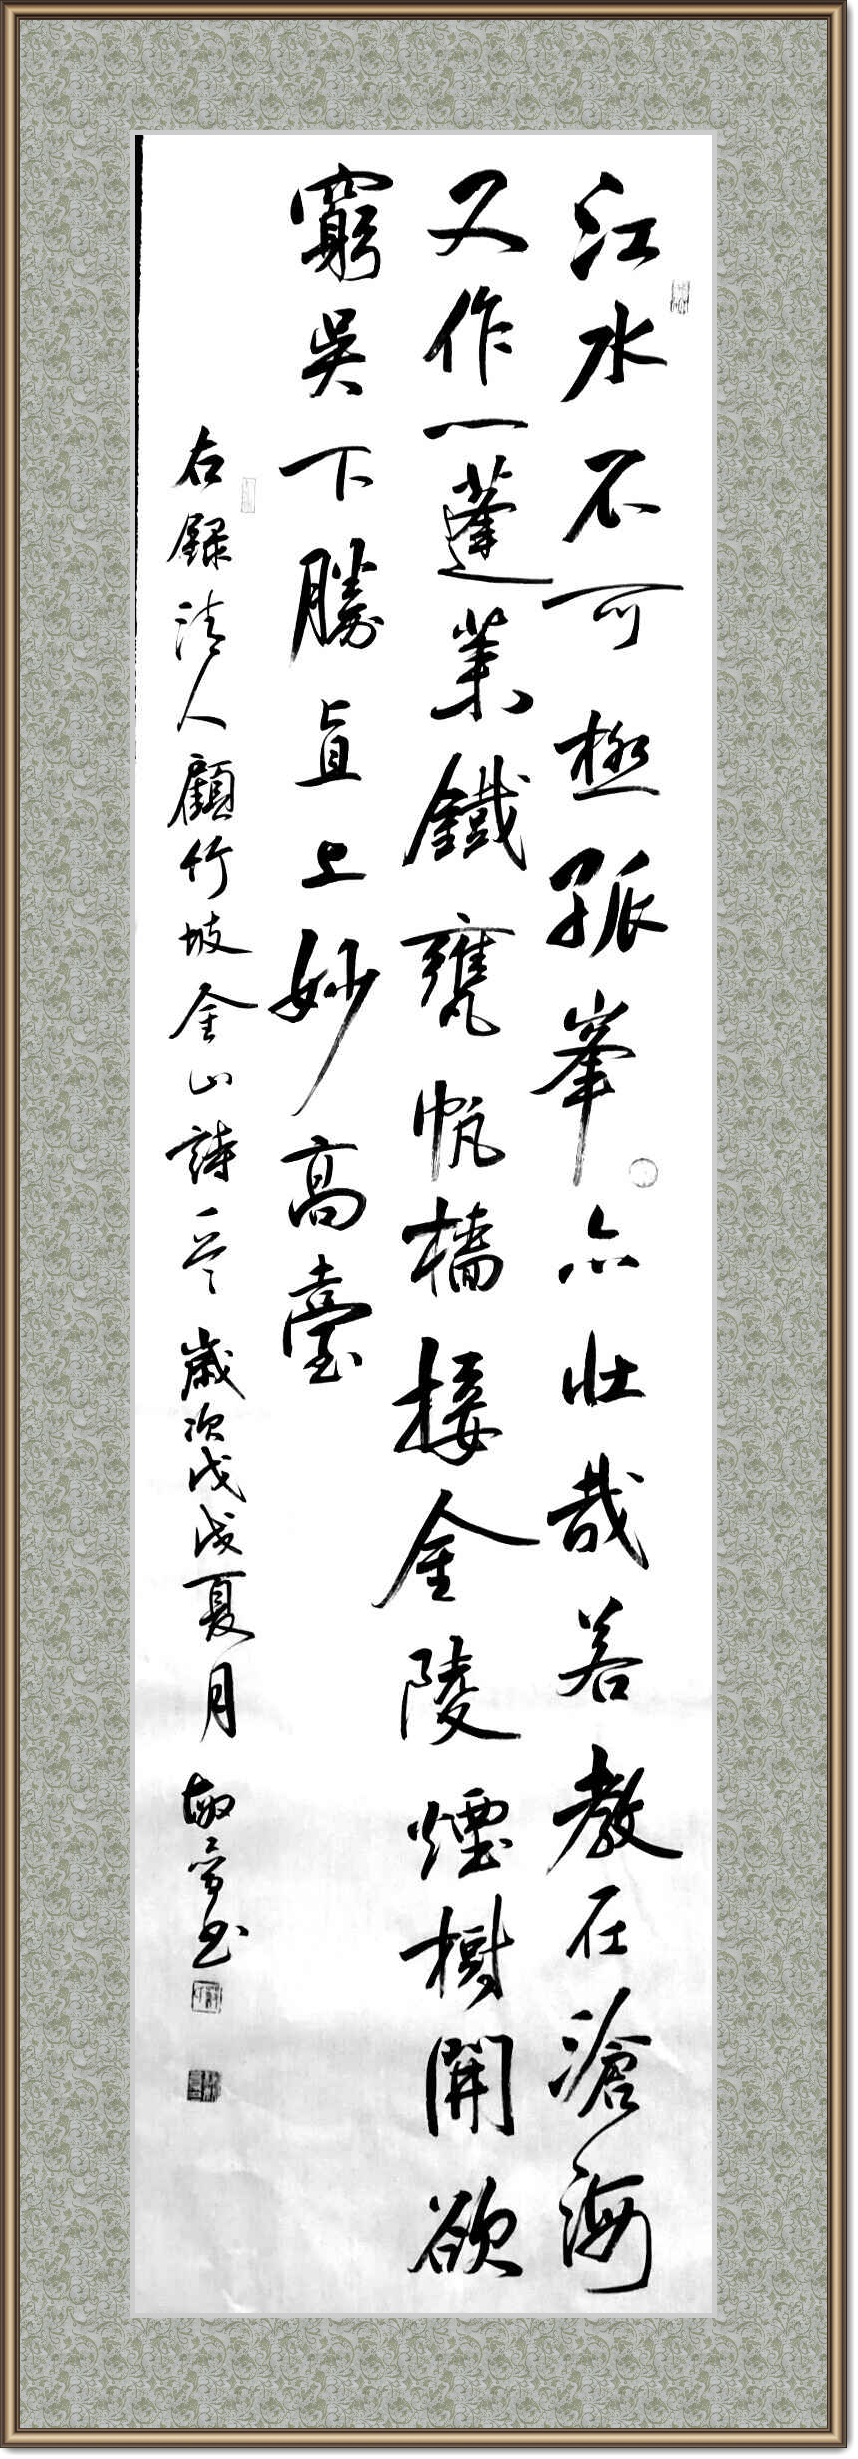 江水不可極孤峯亦壯哉若教在滄海
又作一蓬萊鐵甕帆檣接金陵煙樹開欲
窮吳下勝直上妙高臺
右錄清人顧竹坡金山詩一首歲次戊戌夏月书